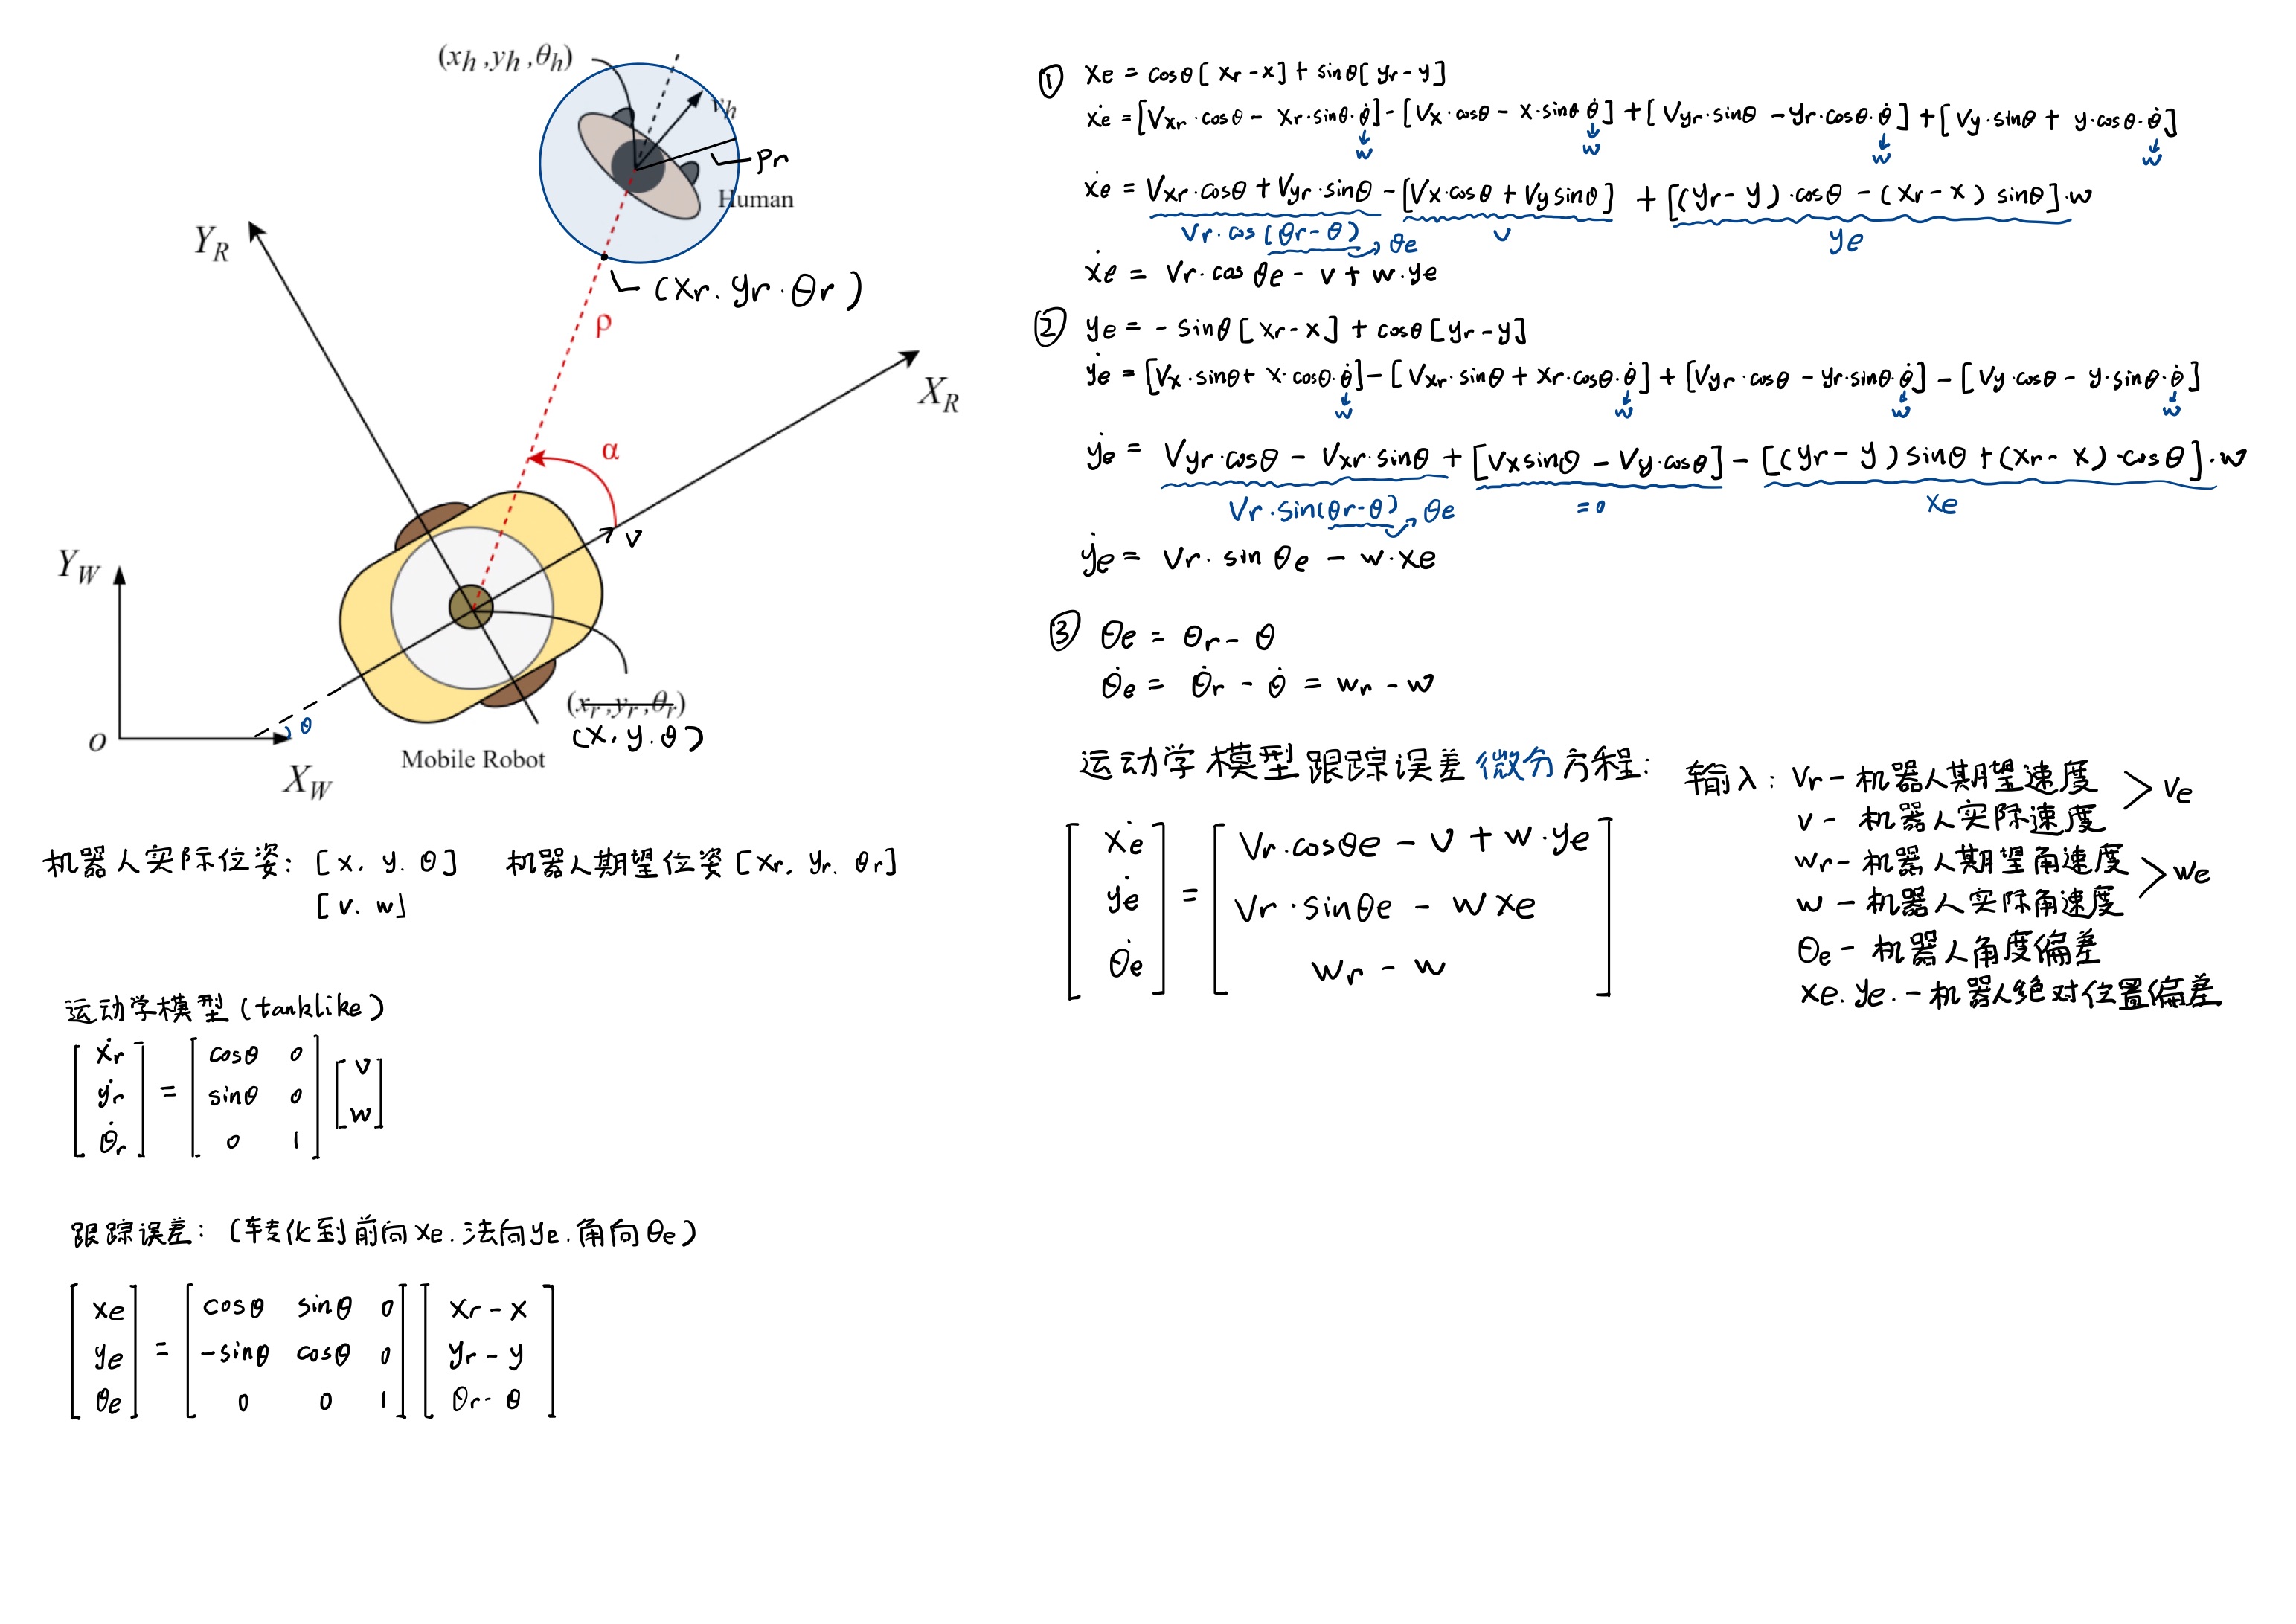 (xh ,yh ,θh)
vh
ρr
Human
YR
(xr. yr. θr)
ρ
XR
α
v
YW
θ
(xr ,yr ,θr)
(x, y. θ)
o
Mobile Robot
XW
机器人实际位姿: [x, y. θ] 机器人期望位姿 [xr, yr. θr]
[v. w]
运动学模型 (tanklike)
[ẋr ẏr θ̇r] = [cosθ 0 sinθ 0 0 1] [v w]
跟踪误差: (转化到前向xe.法向ye.角向θe)
[xe ye θe] = [cosθ sinθ 0 -sinθ cosθ 0 0 0 1] [xr-x yr-y θr-θ]
① xe = cosθ[xr-x] + sinθ[yr-y]
ẋe = [Vxr·cosθ - xr·sinθ·θ̇] - [Vx·cosθ - x·sinθ θ̇] + [Vyr·sinθ - yr·cosθ·θ̇] + [Vy·sinθ + y·cosθ·θ̇]
w w w w
ẋe = Vxr·cosθ + Vyr·sinθ - [Vx·cosθ + Vy sinθ] + [(yr-y)·cosθ - (xr-x) sinθ]·w
Vr·cos(θr-θ) → θe v ye
ẋe = Vr·cos θe - v + w·ye
② ye = -sinθ[xr-x] + cosθ[yr-y]
ẏe = [Vx·sinθ + x·cosθ·θ̇] - [Vxr·sinθ + xr·cosθ·θ̇] + [Vyr·cosθ - yr·sinθ·θ̇] - [Vy·cosθ - y·sinθ·θ̇]
w w w w
ẏe = Vyr·cosθ - Vxr·sinθ + [Vxsinθ - Vy·cosθ] - [(yr-y)sinθ + (xr-x)·cosθ]·w
Vr·sin(θr-θ) → θe =0 xe
ẏe = Vr·sin θe - w·xe
③ θe = θr - θ
θ̇e = θ̇r - θ̇ = wr - w
运动学模型跟踪误差微分方程:
[ẋe ẏe θ̇e] = [Vr·cosθe - v + w·ye Vr·sinθe - wxe wr - w]
输入: Vr - 机器人期望速度
v - 机器人实际速度
> ve
wr - 机器人期望角速度
w - 机器人实际角速度
> we
θe - 机器人角度偏差
xe. ye. - 机器人绝对位置偏差